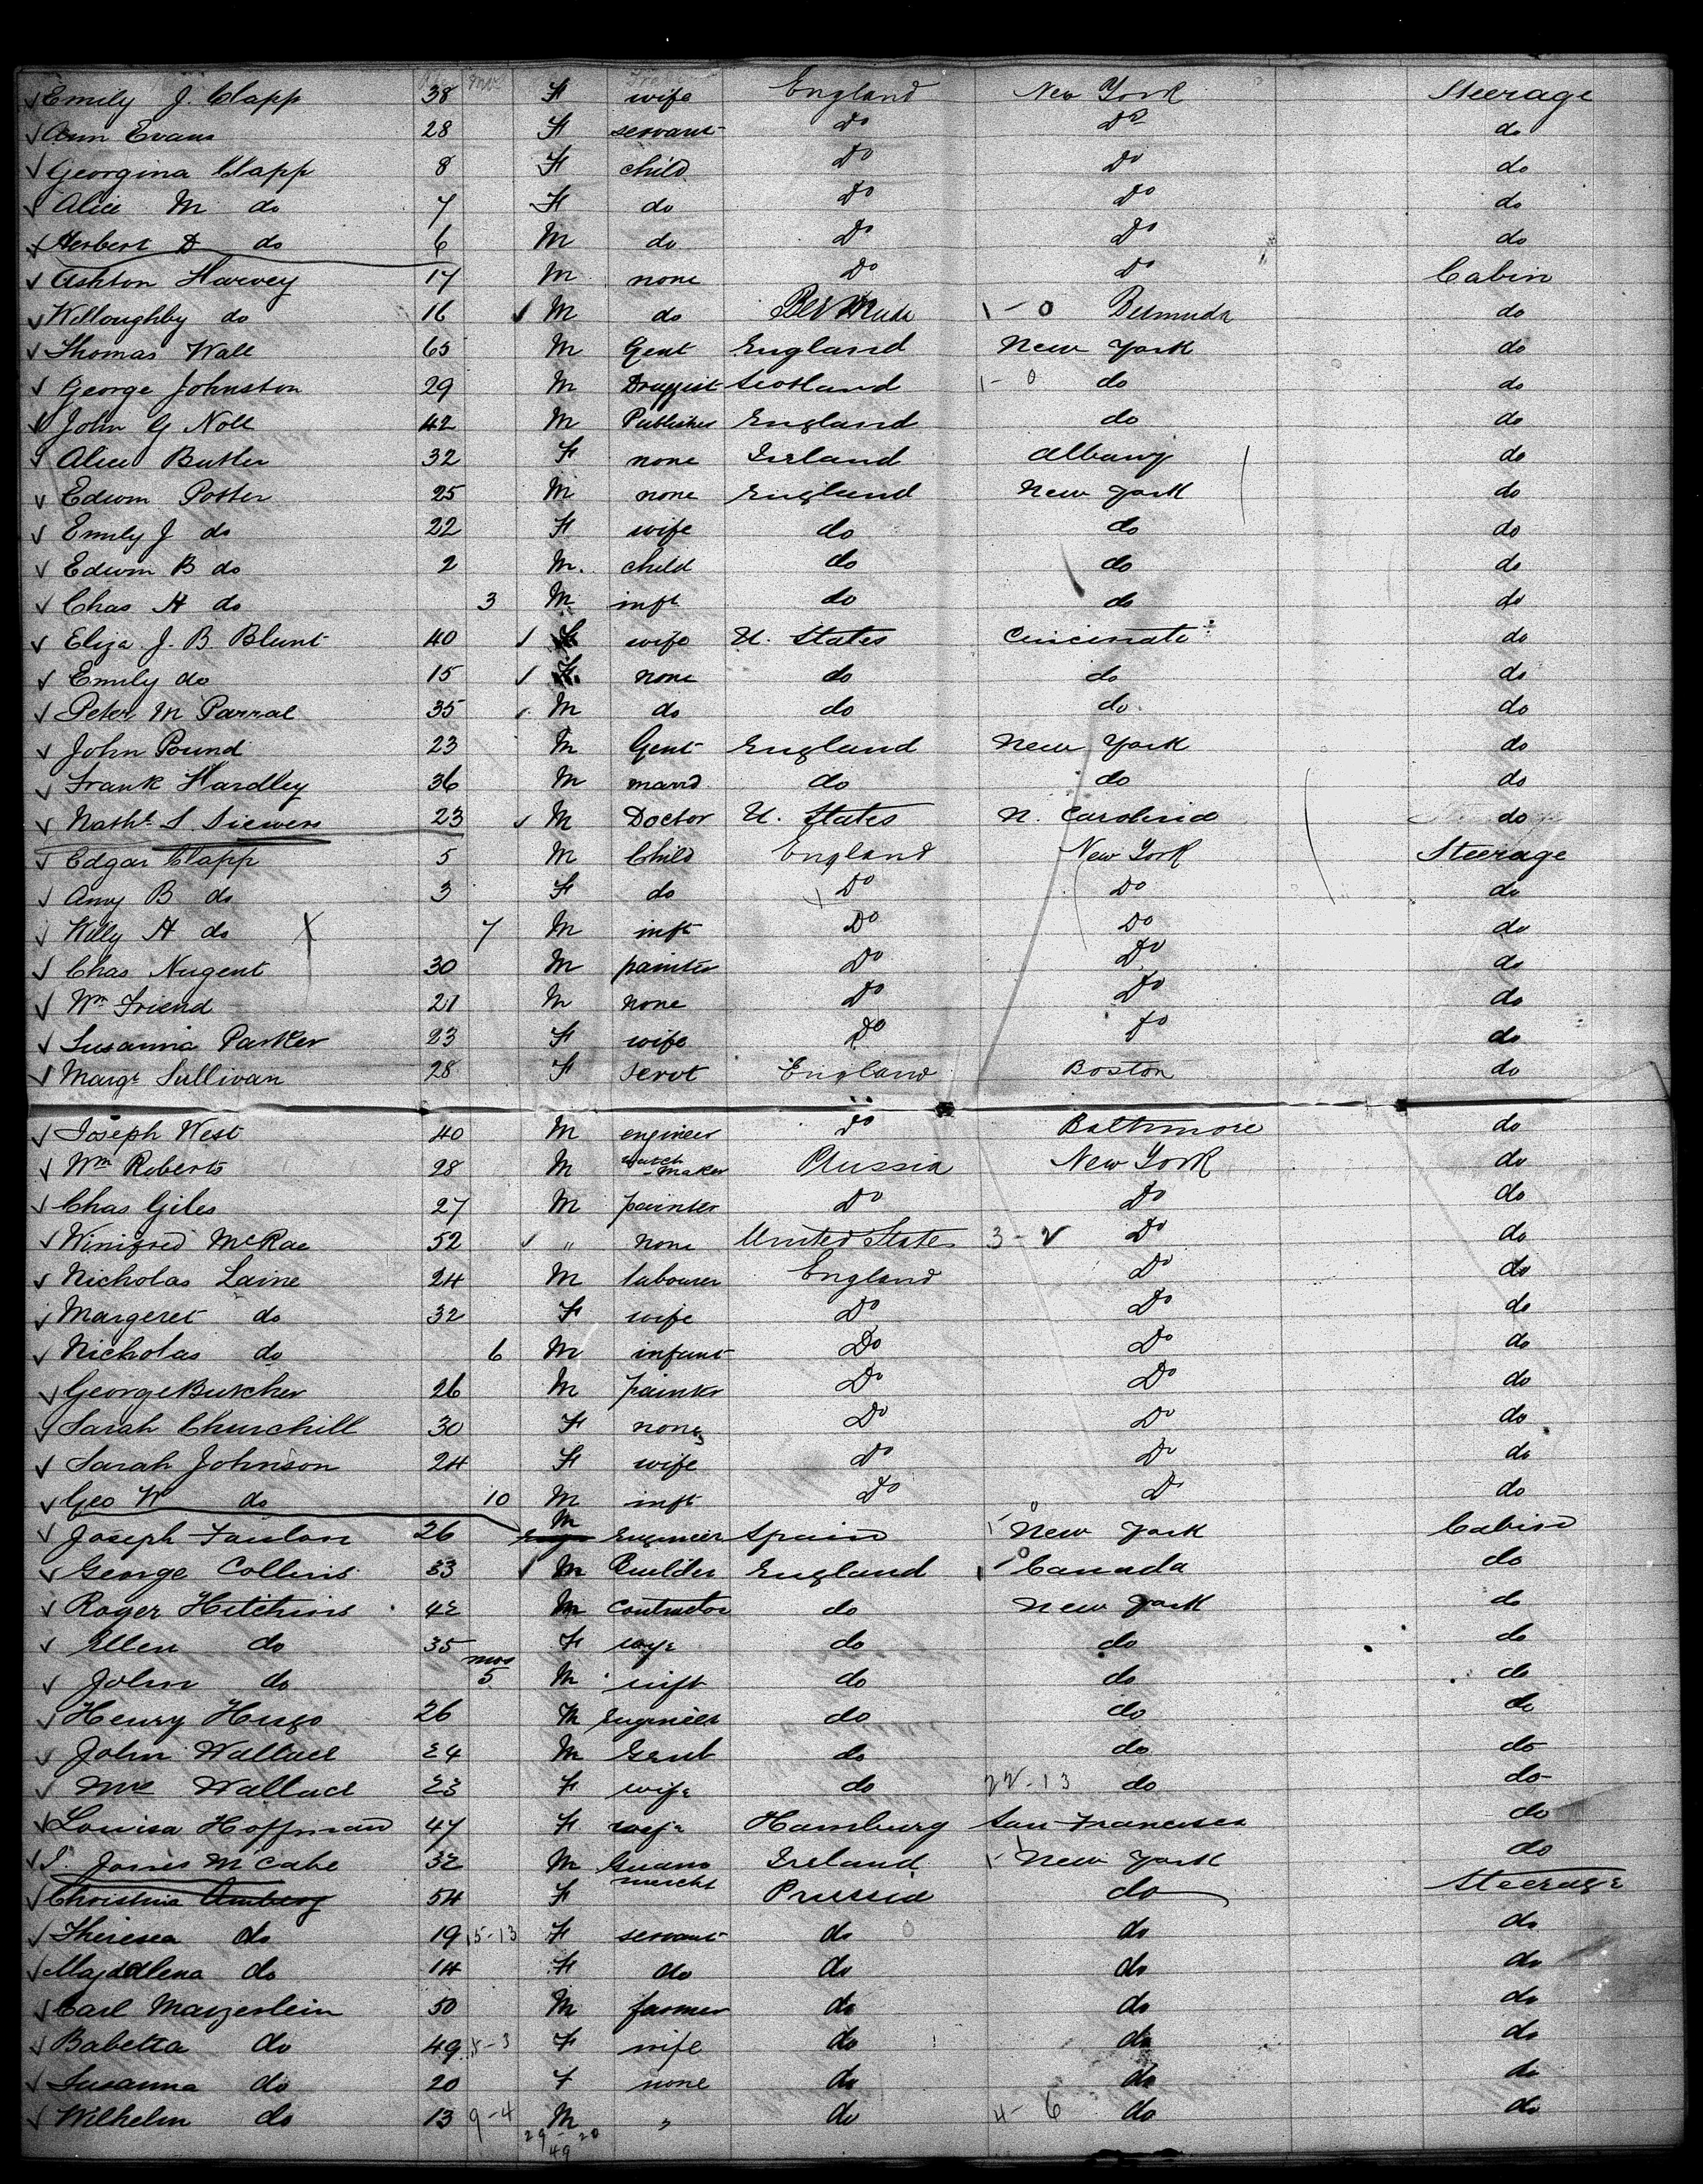 Emily J. Clapp 38 F wife England New York Steerage
Ann Evans 28 F servant Do Do do
Georgina Clapp 8 F child Do Do do
Alice M do 7 F do Do Do do
Herbert D do 6 M do Do Do do
Ashton Harvey 17 M none Do Do Cabin
Willoughby do 16 M do Bermuda 1-0 Bermuda do
Thomas Wall 65 M Gent England New York do
George Johnston 29 M Druggist Scotland 1-0 do do
John G Noll 42 M Publisher England do do
Alice Butler 32 F none Ireland Albany do
Edwin Potter 25 M none England New York do
Emily J do 22 F wife do do do
Edwin B do 2 M. child do do do
Chas H do 3 M inft do do do
Eliza J. B. Blunt 40 F wife U. States Cincinati do
Emily do 15 F. none do do do
Peter M Parral 35 M do do do do
John Pound 23 M Gent England New York do
Frank Hardley 36 M marrd do do do
Nathl S. Siewers 23 M Doctor U. States N. Carolina do
Edgar Clapp 5 M Child England New York Steerage
Amy B do 3 F do Do Do do
Willy H do 7 M inft Do Do do
Chas Nugent 30 M painter Do Do do
Wm Friend 21 M none Do Do do
Susanna Parker 23 F wife Do Do do
Margt Sullivan 28 F servt England Boston do
Joseph West 40 M engineer Do Baltimore do
Wm Roberts 28 M watch maker Prussia New York do
Chas Giles 27 M painter Do Do do
Winifred McRae 52 " none United States 3-2 Do do
Nicholas Laine 24 M labourer England Do do
Margeret do 32 F wife Do Do do
Nicholas do 6 M infant Do Do do
George Butcher 26 M painter Do Do do
Sarah Churchill 30 F none Do Do do
Sarah Johnson 24 F wife Do Do do
Geo W do 10 M inft Do Do do
Joseph 26 M Engineer Spain New York Cabin
George Collins 33 M Builder England Canada do
Roger Hitchins 42 M Contractor do New York do
Ellen do 35 F wife do do do
John do mos 5 M inft do do do
Henry Hugo 26 M Engineer do do do
John Wallace 24 M Gent do do do
Mrs Wallace 23 F wife do 22-13 do do
Louisa Hoffman 47 F wife Hamburg San Francisco do
J. James McCabe 32 M Guano mercht Ireland New York do
Christina Amberg 54 F Prussia do Steerage
Theresea do 19 15-13 F servant do do do
Magdalena do 14 F do do do do
Carl Mayerlein 50 M farmer do do do
Babetta do 49 F wife do do do
Susanna do 20 F none do do do
Wilhelm do 13 9-4 M " do 4-6 do do
29 20
49